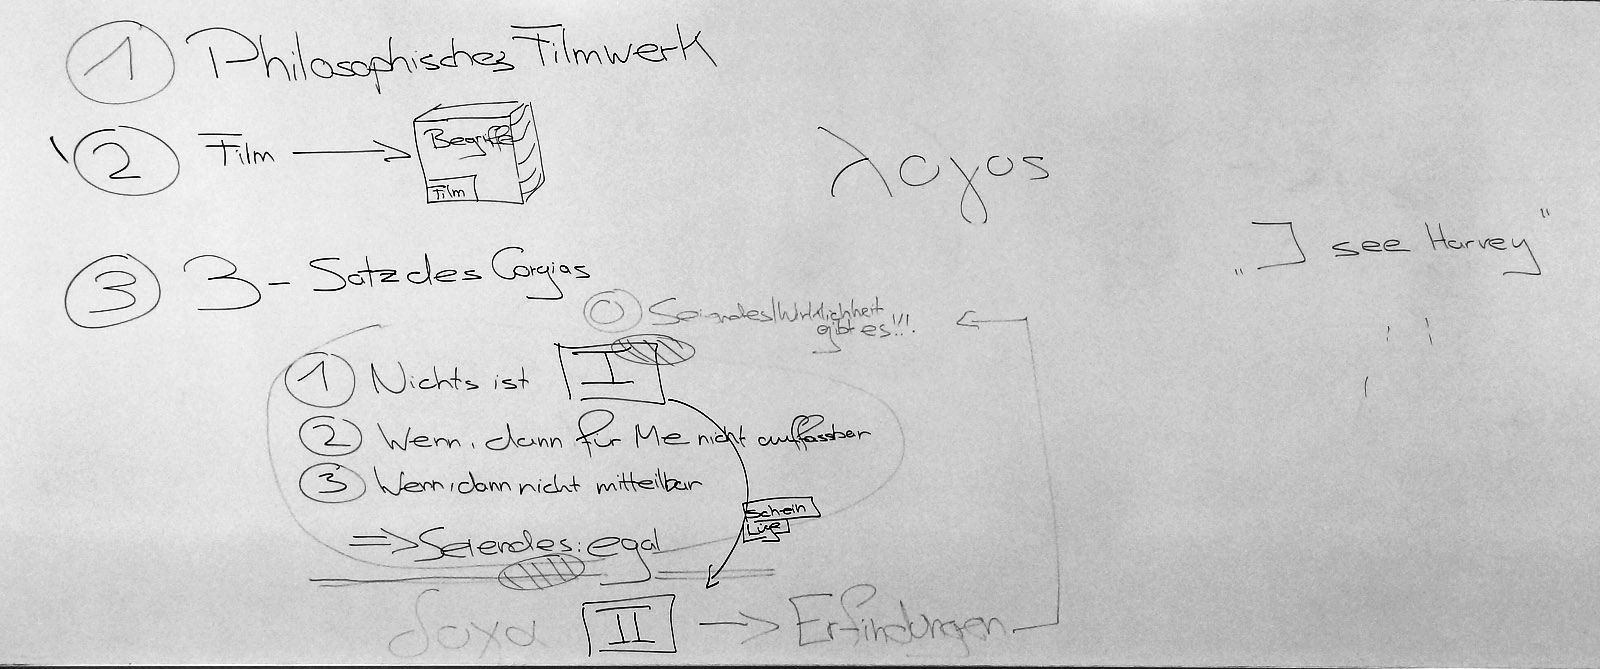 ① Philosophisches Filmwerk
② Film → Begriffe
Film
λογοs
„I see Harvey"
③ 3-Satz des Gorgias
⓪ Seiendes/Wirklichkeit
gibt es!!!
① Nichts ist I
② Wenn, dann für Me nicht auffassbar
③ Wenn, dann nicht mitteilbar
Schein
Lüge
=> Seiendes: egal
doxa II → Erfindungen